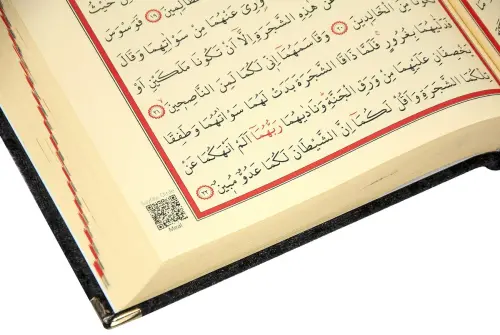 حَيْثُ
الظَّالِمِينَ ﴿١٩﴾ فَوَسْوَسَ
وُرِيَ عَنْهُمَا مِنْ سَوْاٰتِهِمَا وَقَالَ
عَنْ هٰذِهِ الشَّجَرَةِ اِلَّٓا اَنْ تَكُونَا مَلَكَيْنِ اَوْ
تَكُونَا مِنَ الْخَالِدِينَ ﴿٢٠﴾ وَقَاسَمَهُمَٓا اِنِّي لَكُمَا لَمِنَ النَّاصِحِينَ ﴿٢١﴾
فَدَلّٰيهُمَا بِغُرُورٍ فَلَمَّا ذَاقَا الشَّجَرَةَ بَدَتْ لَهُمَا سَوْاٰتُهُمَا وَطَفِقَا
يَخْصِفَانِ عَلَيْهِمَا مِنْ وَرَقِ الْجَنَّةِ وَنَادٰيهُمَا رَبُّهُمَٓا اَلَمْ اَنْهَكُمَا عَنْ
تِلْكُمَا الشَّجَرَةِ وَاَقُلْ لَكُمَٓا اِنَّ الشَّيْطَانَ لَكُمَا عَدُوٌّ مُبِينٌ ﴿٢٢﴾
Meal